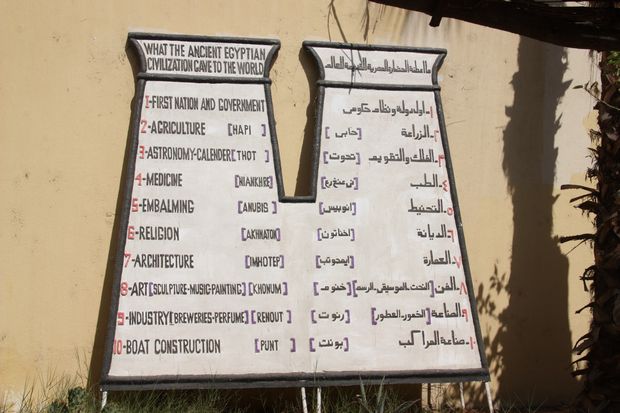 WHAT THE ANCIENT EGYPTIAN
CIVILIZATION GAVE TO THE WORLD
1-FIRST NATION AND GOVERNMENT
2-AGRICULTURE [HAPI]
3-ASTRONOMY-CALENDER [THOT]
4-MEDICINE [NIANKHRE]
5-EMBALMING [ANUBIS]
6-RELIGION [AKHNATON]
7-ARCHITECTURE [IMHOTEP]
8-ART [SCULPTURE-MUSIC-PAINTING] [KHONUM]
9-INDUSTRY [BREWERIES-PERFUME] [RENOUT]
10-BOAT CONSTRUCTION [PUNT]
ما اعطته الحضارة المصرية القديمة للعالم
١-اول دولة ونظام حكومى
٢-الزراعة [حابى]
٣-الفلك والتقويم [تحوت]
٤-الطب [نى عنخ رع]
٥-التحنيط [انوبيس]
٦-الديانة [اخناتون]
٧-العمارة [ايمحوتب]
٨-الفن [النحت-الموسيقى-الرسم] [خنوم]
٩-الصناعة [الخمور-العطور] [رنوت]
١٠-صناعة المراكب [بونت]